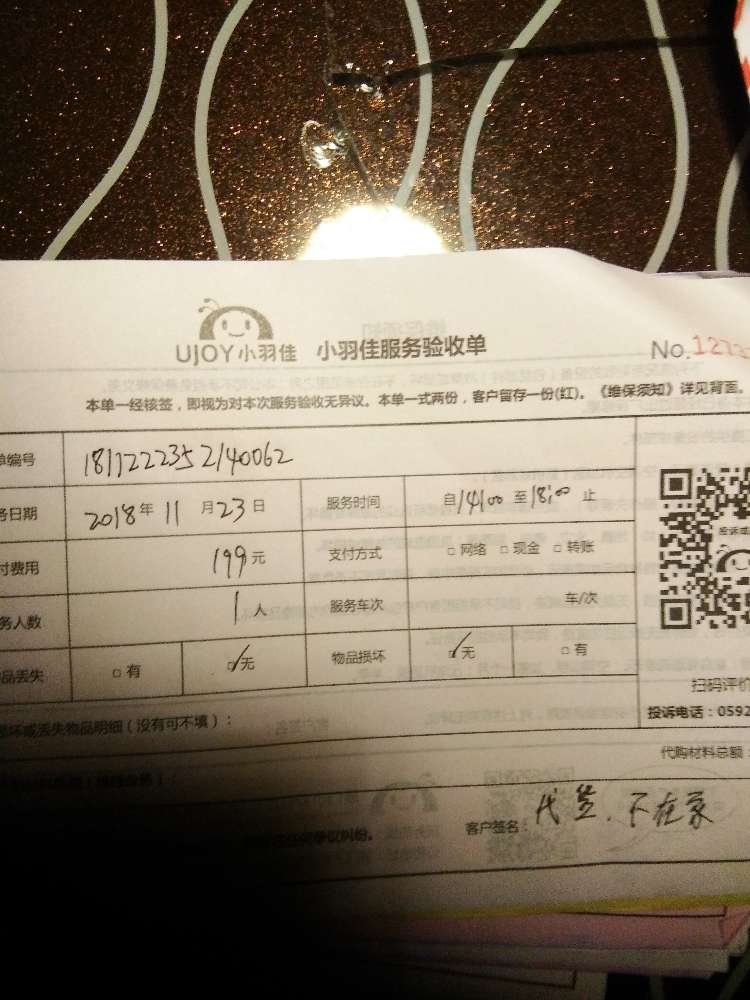 UJOY小羽佳 小羽佳服务验收单 No.1273
本单一经核签，即视为对本次服务验收无异议。本单一式两份，客户留存一份(红)。《维保须知》详见背面。
单编号 181122235 2140062
务日期 2018年 11 月 23 日 服务时间 自 14:00 至 18:00 止
付费用 199 元 支付方式 □ 网络 □ 现金 □ 转账
务人数 1 人 服务车次 车/次
品丢失 □ 有 ☑ 无 物品损坏 ☑ 无 □ 有
扫码评价
投诉电话：0592
坏或丢失物品明细（没有可不填）：
代购材料总额：
何争议纠纷。
客户签名：代签.不在家